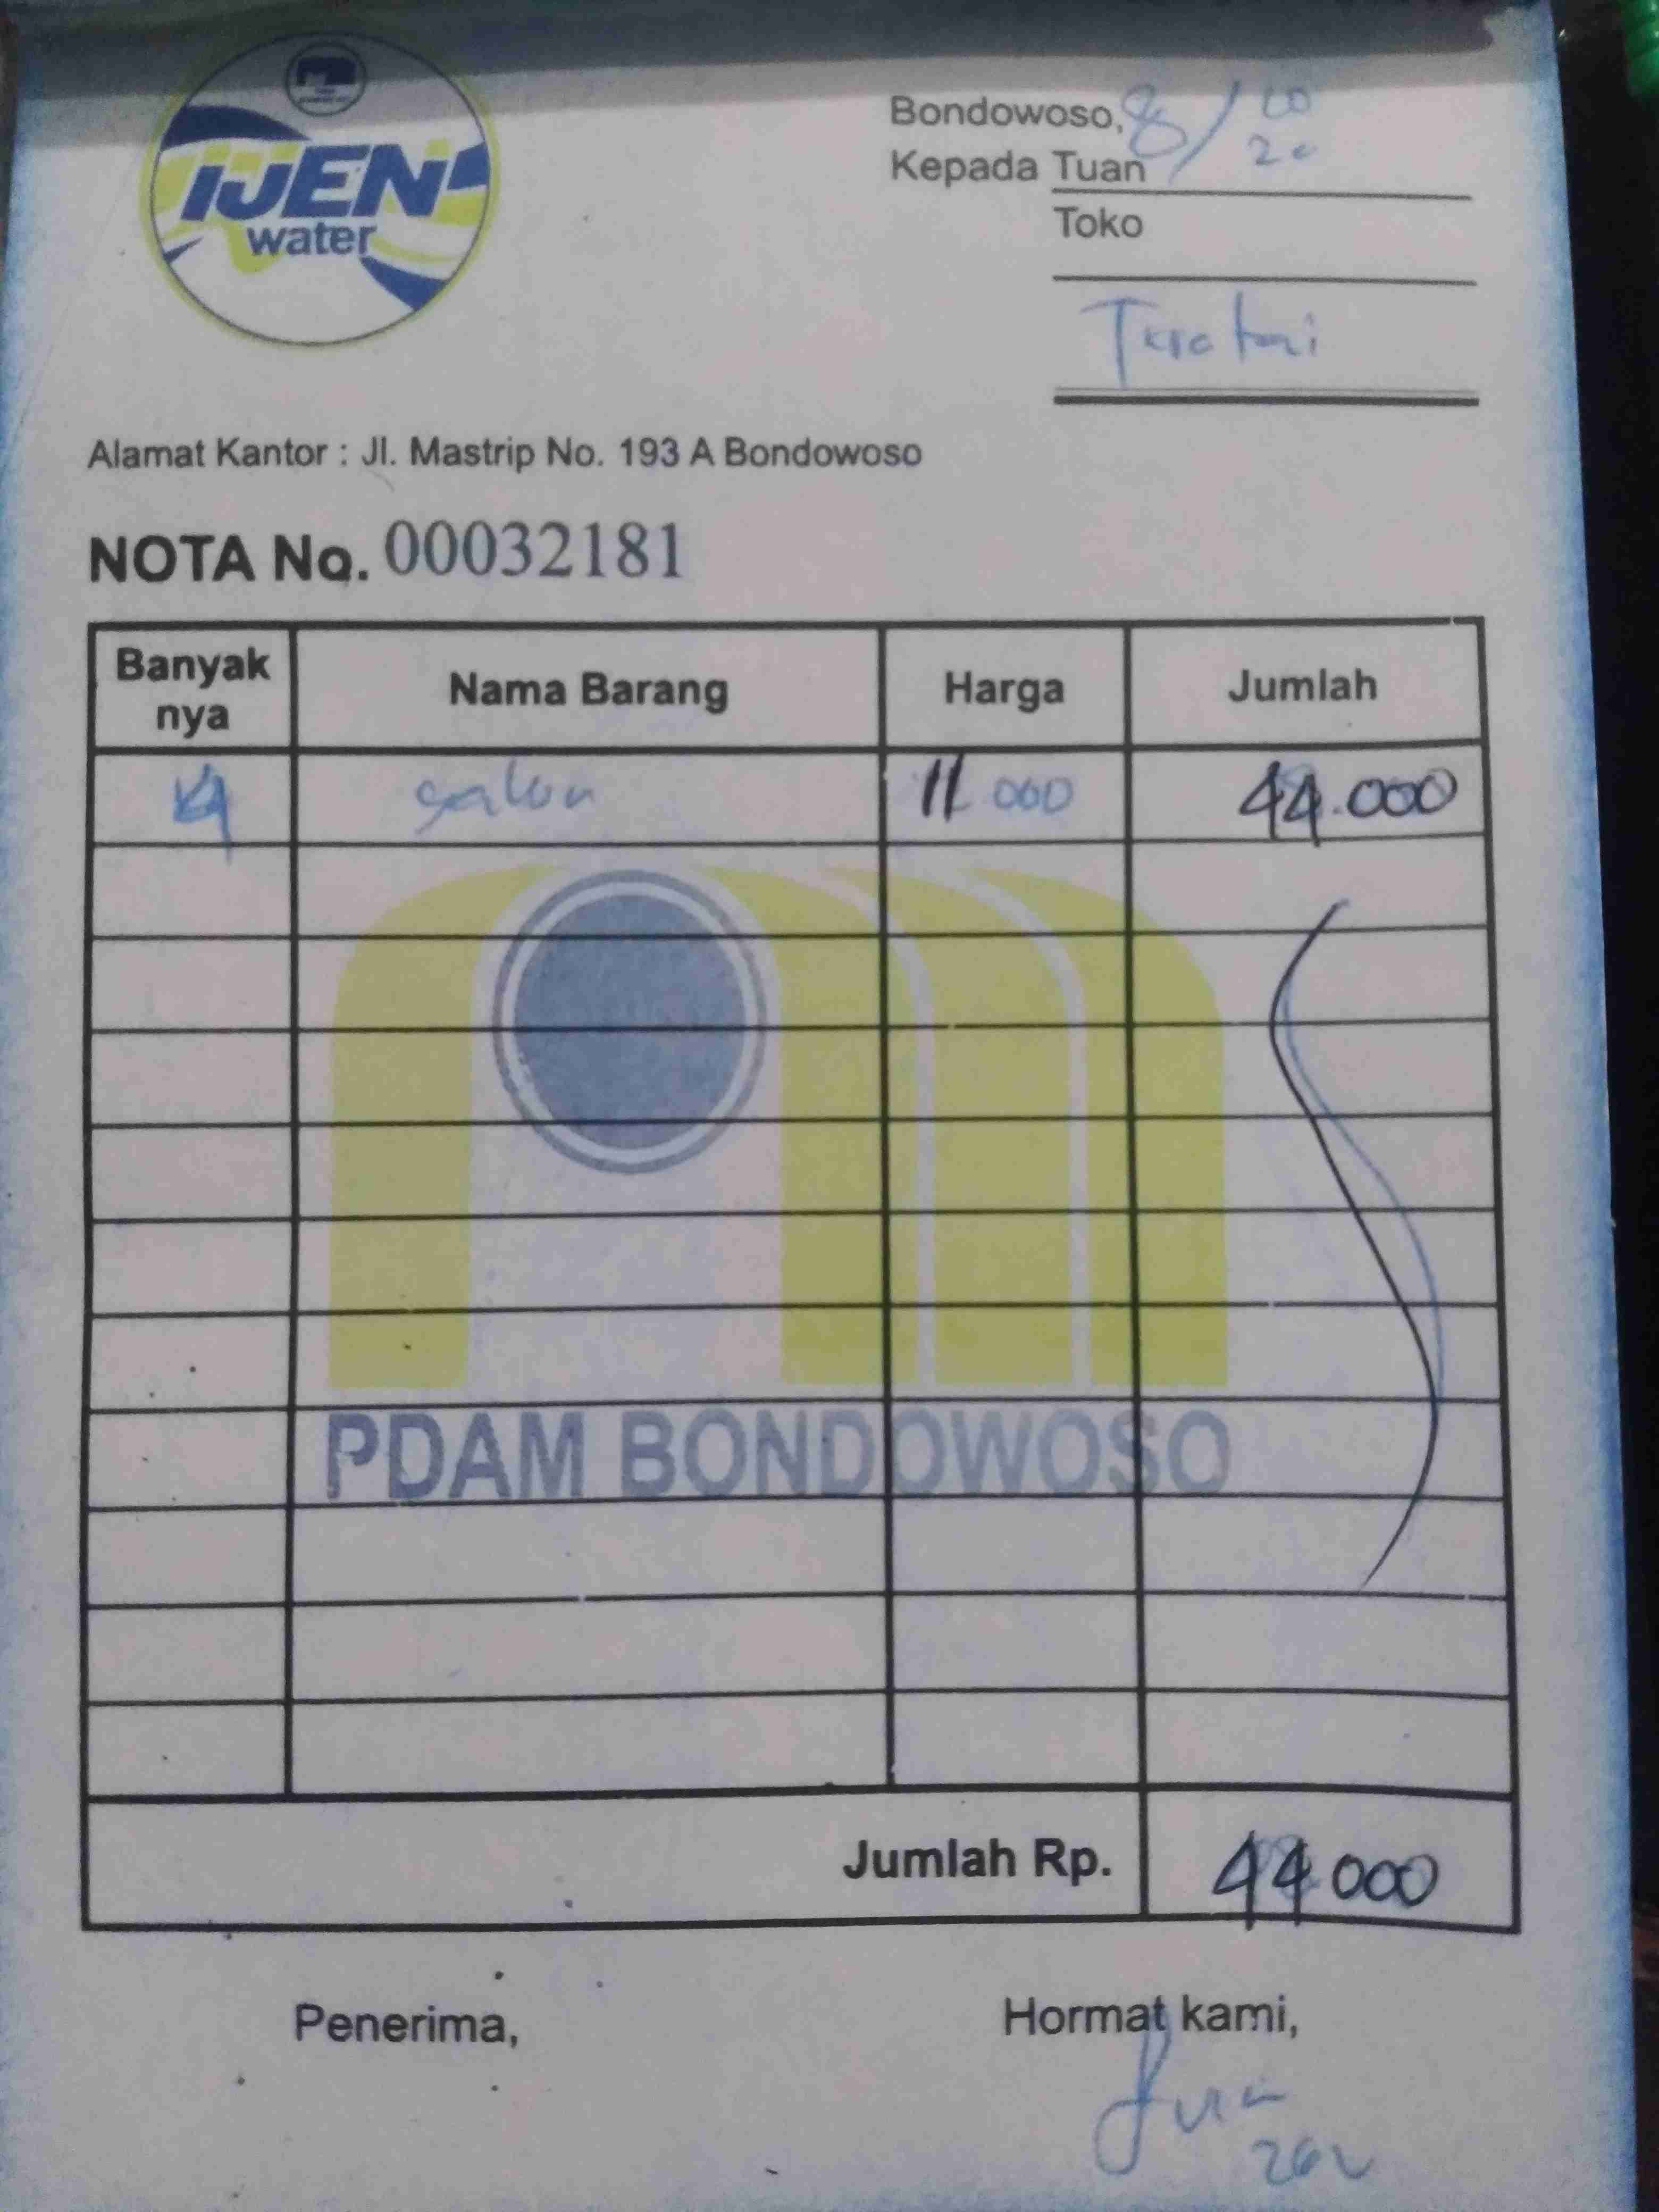 IJEN
water
Bondowoso, 8/10 20
Kepada Tuan
Toko
Alamat Kantor : Jl. Mastrip No. 193 A Bondowoso
NOTA No. 00032181
Banyak nya Nama Barang Harga Jumlah
4 galon 11.000 44.000
PDAM BONDOWOSO
Jumlah Rp. 44.000
Penerima, Hormat kami,